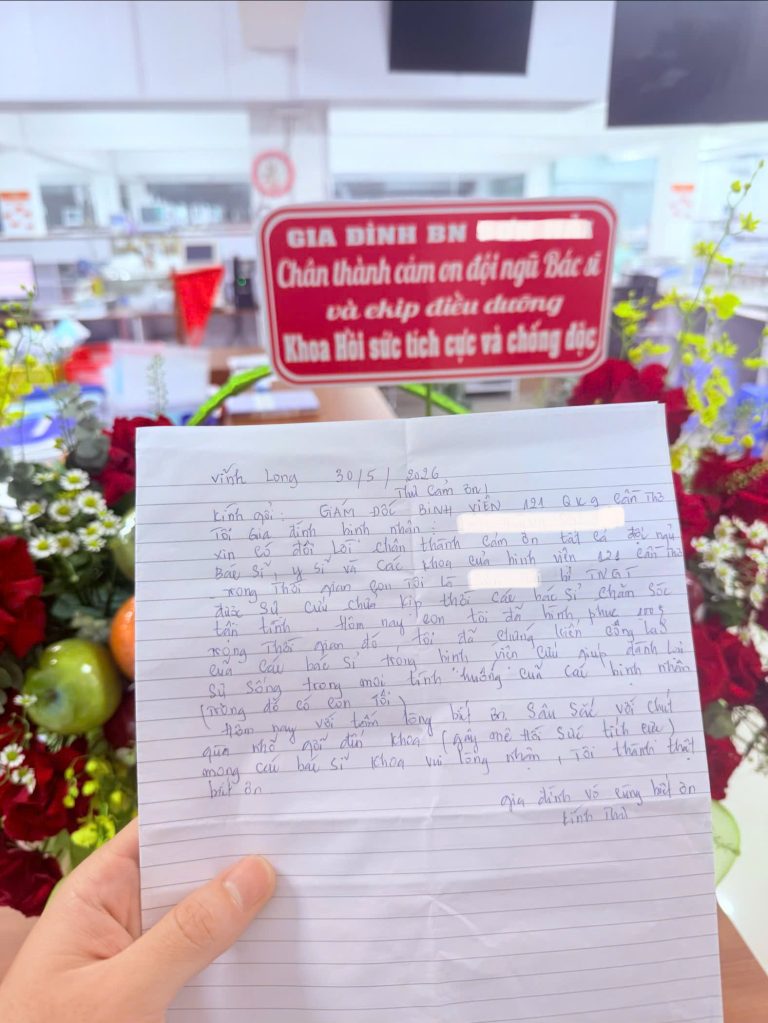 GIA ĐÌNH BN
Chân thành cảm ơn đội ngũ Bác sĩ
và ekip điều dưỡng
Khoa Hồi sức tích cực và chống độc
Vĩnh Long 30/5/2026
Thư Cảm ơn!
Kính gởi: GIÁM ĐỐC BỊNH VIÊN 121 QK9 Cần Thơ
Tôi Gia đình bịnh nhân:
xin có đôi Lời chân thành cảm ơn tất cả đội ngũ
Bác sĩ, y sĩ và các khoa của bịnh viên 121 cần thơ
trong Thời gian con Tôi là bị TNGT
được sự cứu chửa kịp thời các bác sĩ chăm sóc
tận tình Hôm nay con tôi đã bình phục
trong Thời gian đó tôi đã chứng kiến công lao
của các bác sĩ trong bịnh viên cứu giúp dành Lại
sự sống trong mọi tình huống của các bịnh nhân
(trong đó có con Tôi)
Hôm nay với tấm lòng biết ơn sâu sắc với chút
quà nhỏ gởi đến khoa (gây mê Hồi sức tích cực)
mong các bác sĩ khoa vui lòng nhận, Tôi thành thật
biết ơn
gia đình vô cùng biết ơn
kính Thư